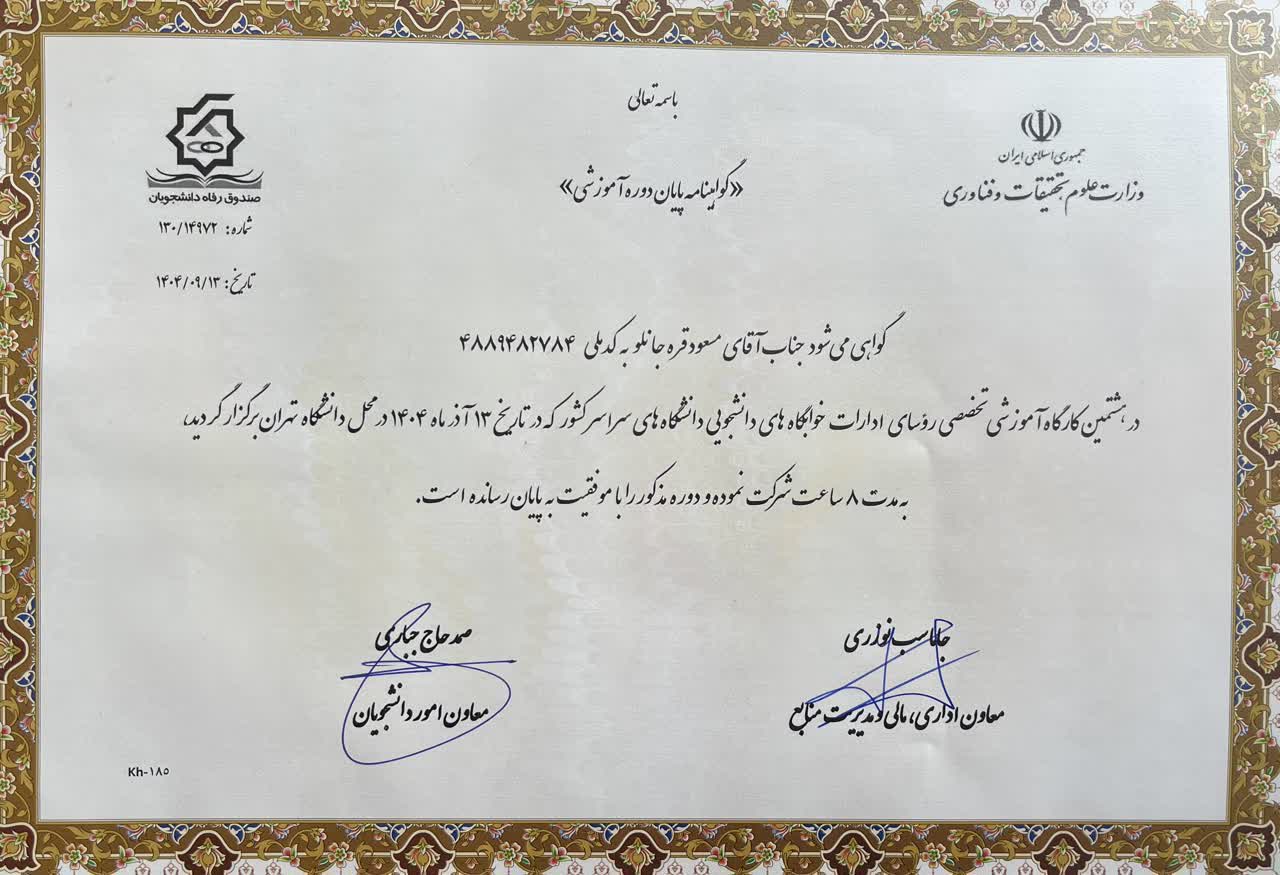 باسمه تعالی
جمهوری اسلامی ایران
وزارت علوم، تحقیقات و فناوری
«گواهینامه پایان دوره آموزشی»
صندوق رفاه دانشجویان
شماره: ۱۳۰/۱۴۹۷۲
تاریخ: ۱۴۰۴/۰۹/۱۳
گواهی می شود جناب آقای مسعود قره جانلو به کد ملی ۴۸۸۹۴۸۲۷۸۴
در هشتمین کارگاه آموزشی تخصصی رؤسای ادارات خوابگاه های دانشجویی دانشگاه های سراسر کشور که در تاریخ ۱۳ آذر ماه ۱۴۰۴ در محل دانشگاه تهران برگزار گردید،
به مدت ۸ ساعت شرکت نموده و دوره مذکور را با موفقیت به پایان رسانده است.
جاماسب نوزری
معاون اداری، مالی و مدیریت منابع
صمد حاج جباری
معاون امور دانشجویان
Kh-۱۸۵